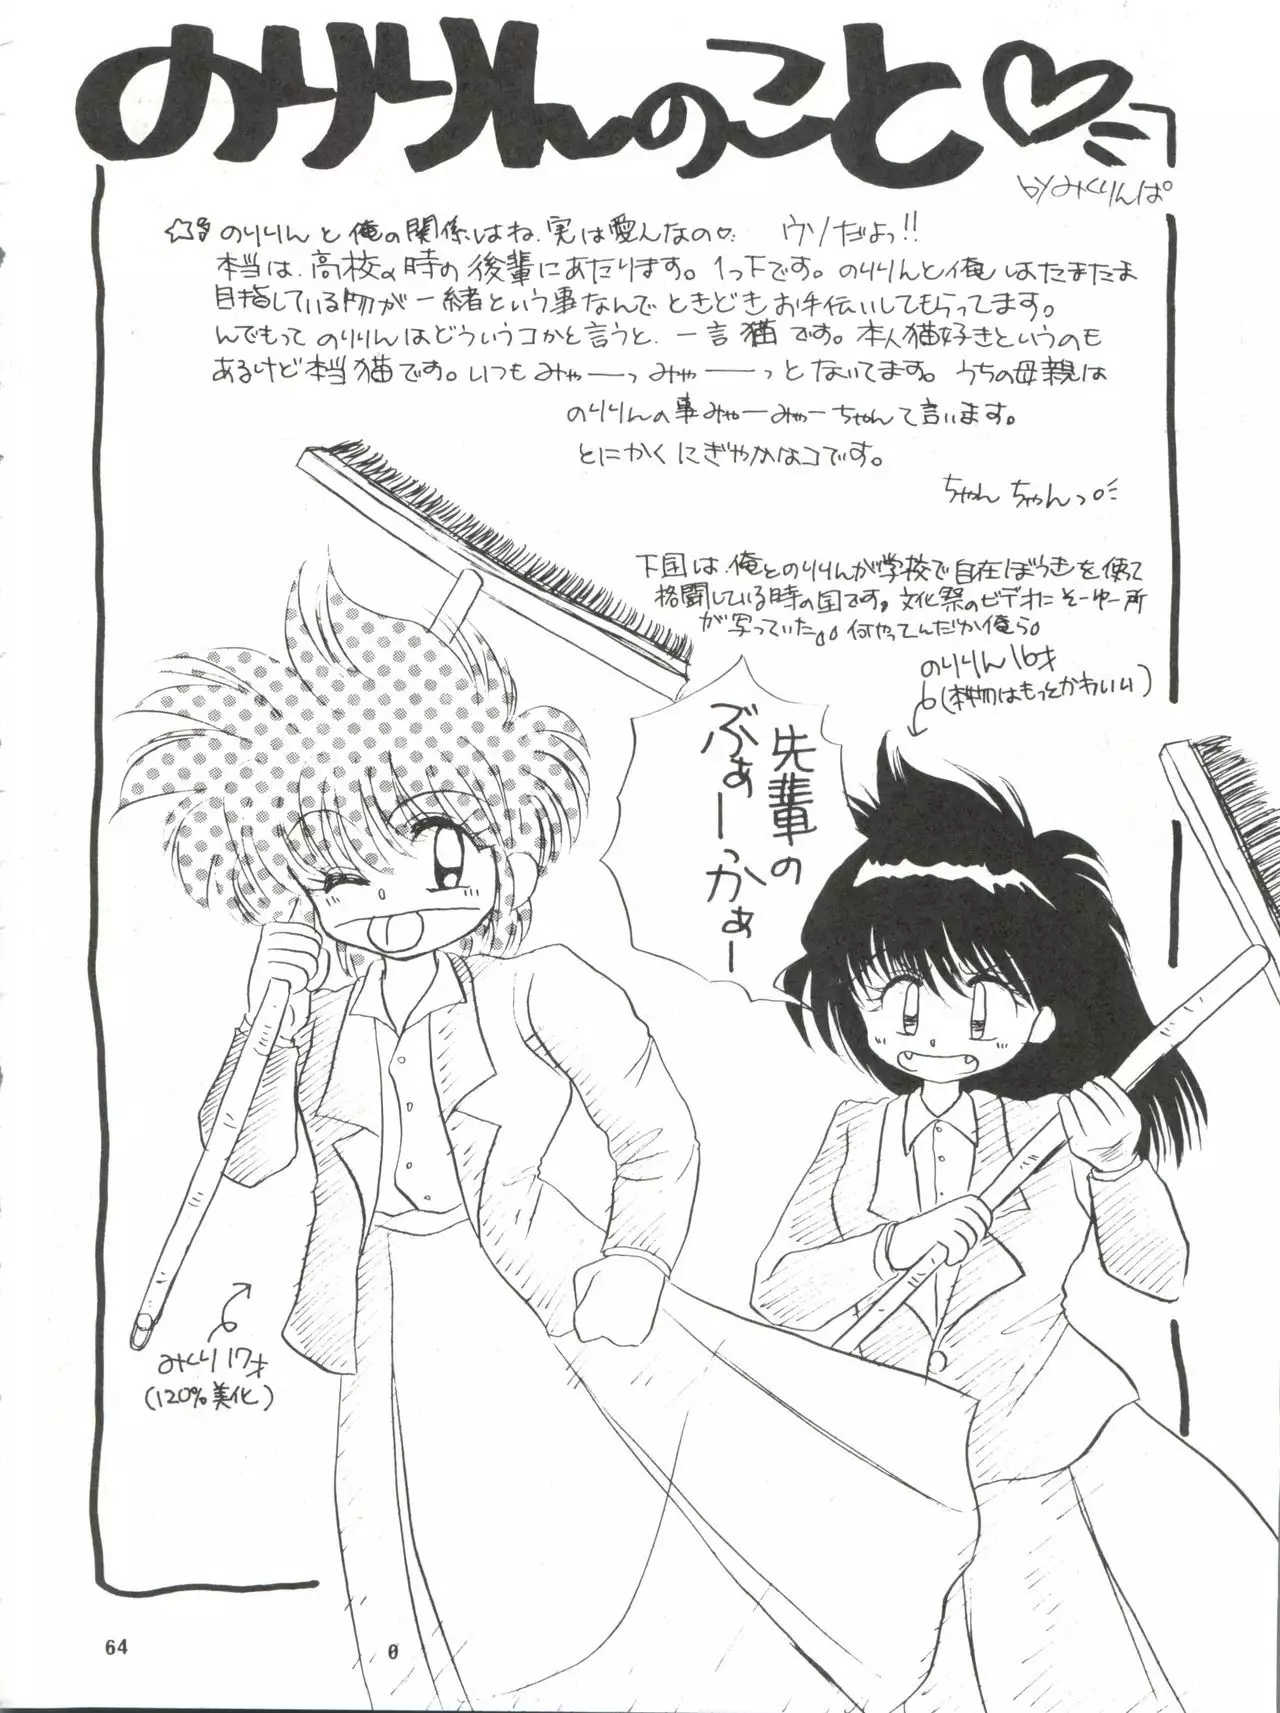 のりりんのこと♡
byみくりんぱ°
☆彡のりりんと俺の関係はね、実は愛人なの♡ ウソだよっ!!
本当は、高校の時の後輩にあたります。1つ下です。のりりんと俺はたまたま
目指している物が一緒という事なんでときどきお手伝いしてもらってます。
んでもってのりりんはどういうコかと言うと、一言猫です。本人猫好きというのも
あるけど本当猫です。いつもみゃーーっみゃーーっとないてます。うちの母親は
のりりんの事みゃーみゃーちゃんて言います。
とにかくにぎやかなコです。
ちゃんちゃんっ。
下図は、俺とのりりんが学校で自在ぼうきを使って
格闘している時の図です。文化祭のビデオにそーゆー所
が写っていた。。何やってんだか俺ら。
のりりん16才
(本物はもっとかわいい)
先輩の
ぶぁーっかぁー
みくり17才
(120%美化)
64
0